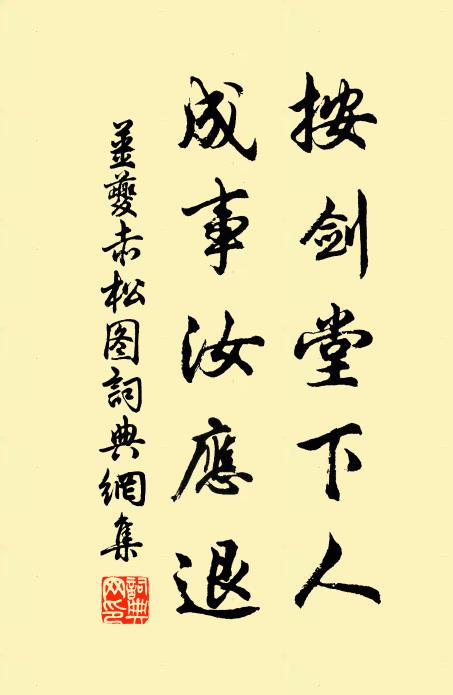 按剑堂下人
成事汝應退
薑夔赤松图詞典網集
詞典网印